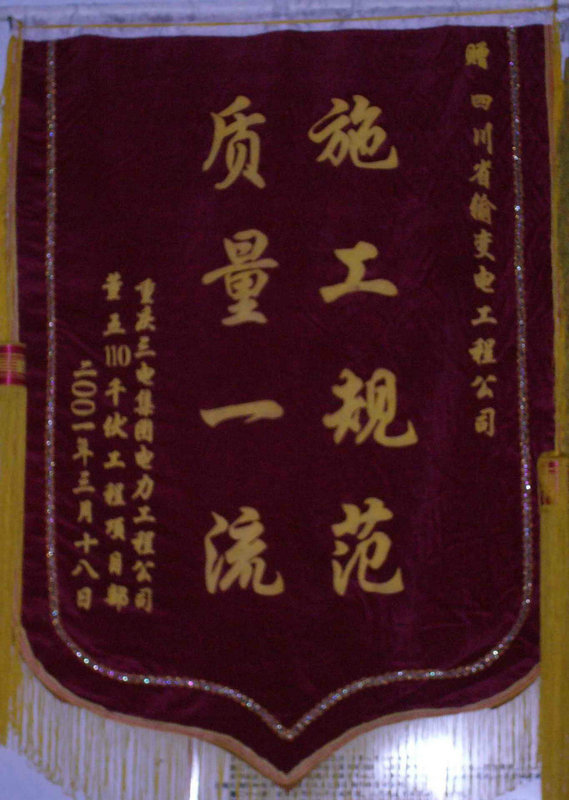 赠 四川省输变电工程公司
施工规范
质量一流
重庆三电集团电力工程公司
董五110千伏工程项目部
二00一年三月十八日